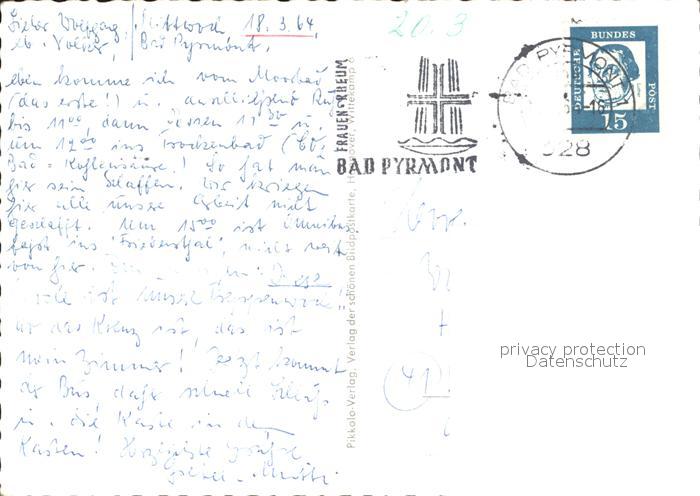 Lieber Wolfgang, Mittwoch 18.3.64,
lb. Volker, Bad Pyrmont,
20.3
eben komme ich vom Moorbad
(das erste!) u. anschließend Ruhe
bis 11⁰⁰, dann Essen 11³⁰ u.
um 12⁰⁰ ins Trockenbad (CO₂
Bad = Kohlensäure!) So hat man
hier sein Schaffen. Wir kriegen
hier alle unsere Arbeit nicht
geschafft. Um 15⁰⁰ ist Omnibus
fahrt ins "Friedensthal", nicht weit
von hier.
ist unser Treppen
wo das Kreuz ist, das ist
mein Zimmer! Jetzt kommt
der Bus, daher schnell Schluß
u. die Karte in den
Kasten! Herzliche Grüße
Mutti
FRAUEN + RHEUM
BAD PYRMONT
BAD PYRMONT
328
DEUTSCHE BUNDES POST
15
Pikkolo-Verlag, Verlag der schönen Bildpostkarte, Wittekamp 6
Herr
(41
privacy protection
Datenschutz